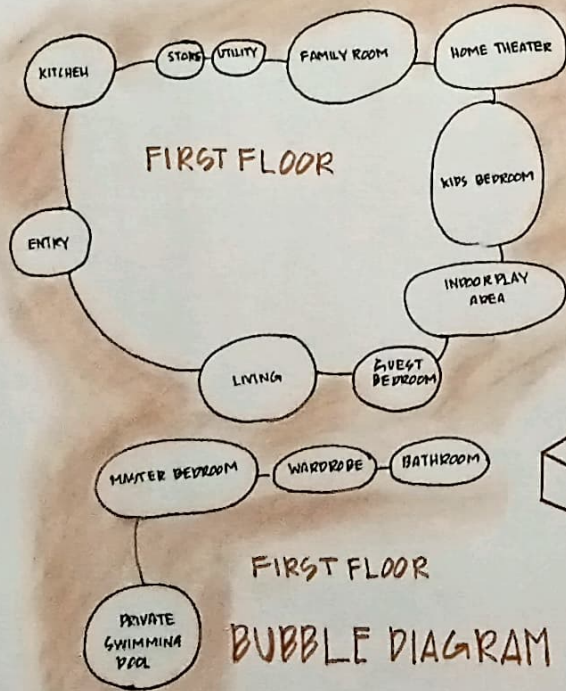 KITCHEN
STORE
UTILITY
FAMILY ROOM
HOME THEATER
FIRST FLOOR
KIDS BEDROOM
ENTRY
INDOOR PLAY
AREA
LIVING
GUEST
BEDROOM
MASTER BEDROOM
WARDROBE
BATHROOM
FIRST FLOOR
PRIVATE
SWIMMING
POOL
BUBBLE DIAGRAM